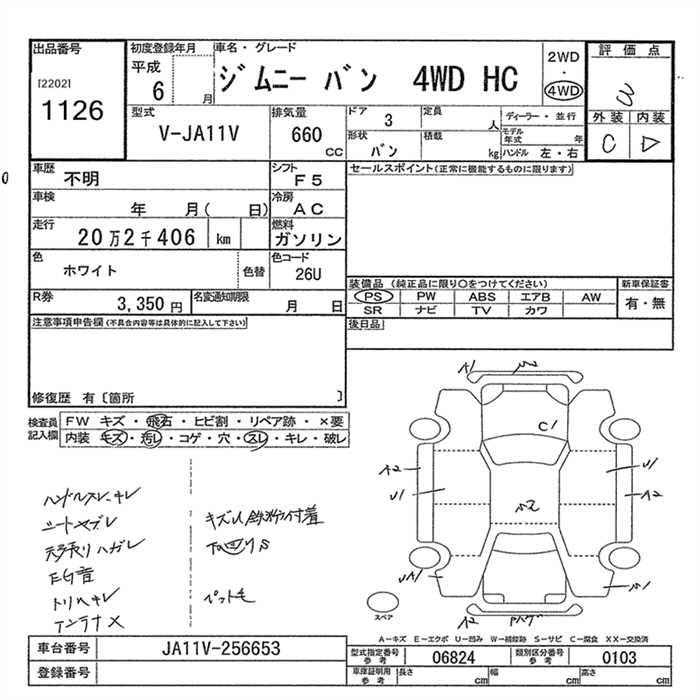 出品番号
[2202]
1126
初度登録年月
平成
6
月
車名・グレード
ジムニー バン 4WD HC
2WD
・
4WD
評価点
3
外装 内装
C D
型式
V-JA11V
排気量
660
CC
ドア
3
定員
人
形状
バン
積載
kg
ディーラー・並行
モデル年式
年
ハンドル 左・右
車歴
不明
シフト
F5
車検
年 月( 日)
冷房
AC
走行
20万2千406 km
燃料
ガソリン
色
ホワイト
色替
色コード
26U
R券
3,350 円
名変通知期限
月 日
セールスポイント(正常に機能するものに限ります)
装備品 (純正品に限り○をつけてください)
PS PW ABS エアB AW
SR ナビ TV カワ
新車保証書
有・無
後日品
注意事項申告欄(不具合内容等は具体的に記入して下さい)
修復歴 有〔箇所 〕
検査員
記入欄
FW キズ・飛石・ヒビ割・リペア跡・×要
内装 キズ・汚レ・コゲ・穴・スレ・キレ・破レ
ハンドルスレ、キレ
シートヤブレ
天張リハガレ
EG音
トリハキレ
アンテナX
キズU鉄粉付着
下回りS
ペット毛
A1
C1
A2
U1
U1
A2
A2
スペア
A-キズ E-エクボ U-凹み W-補修跡 S-サビ C-腐食 XX-交換済
車台番号
JA11V-256653
登録番号
型式指定番号
参考
06824
類別区分番号
参考
0103
車庫証明用
参考
長さ
cm
幅
cm
高さ
cm